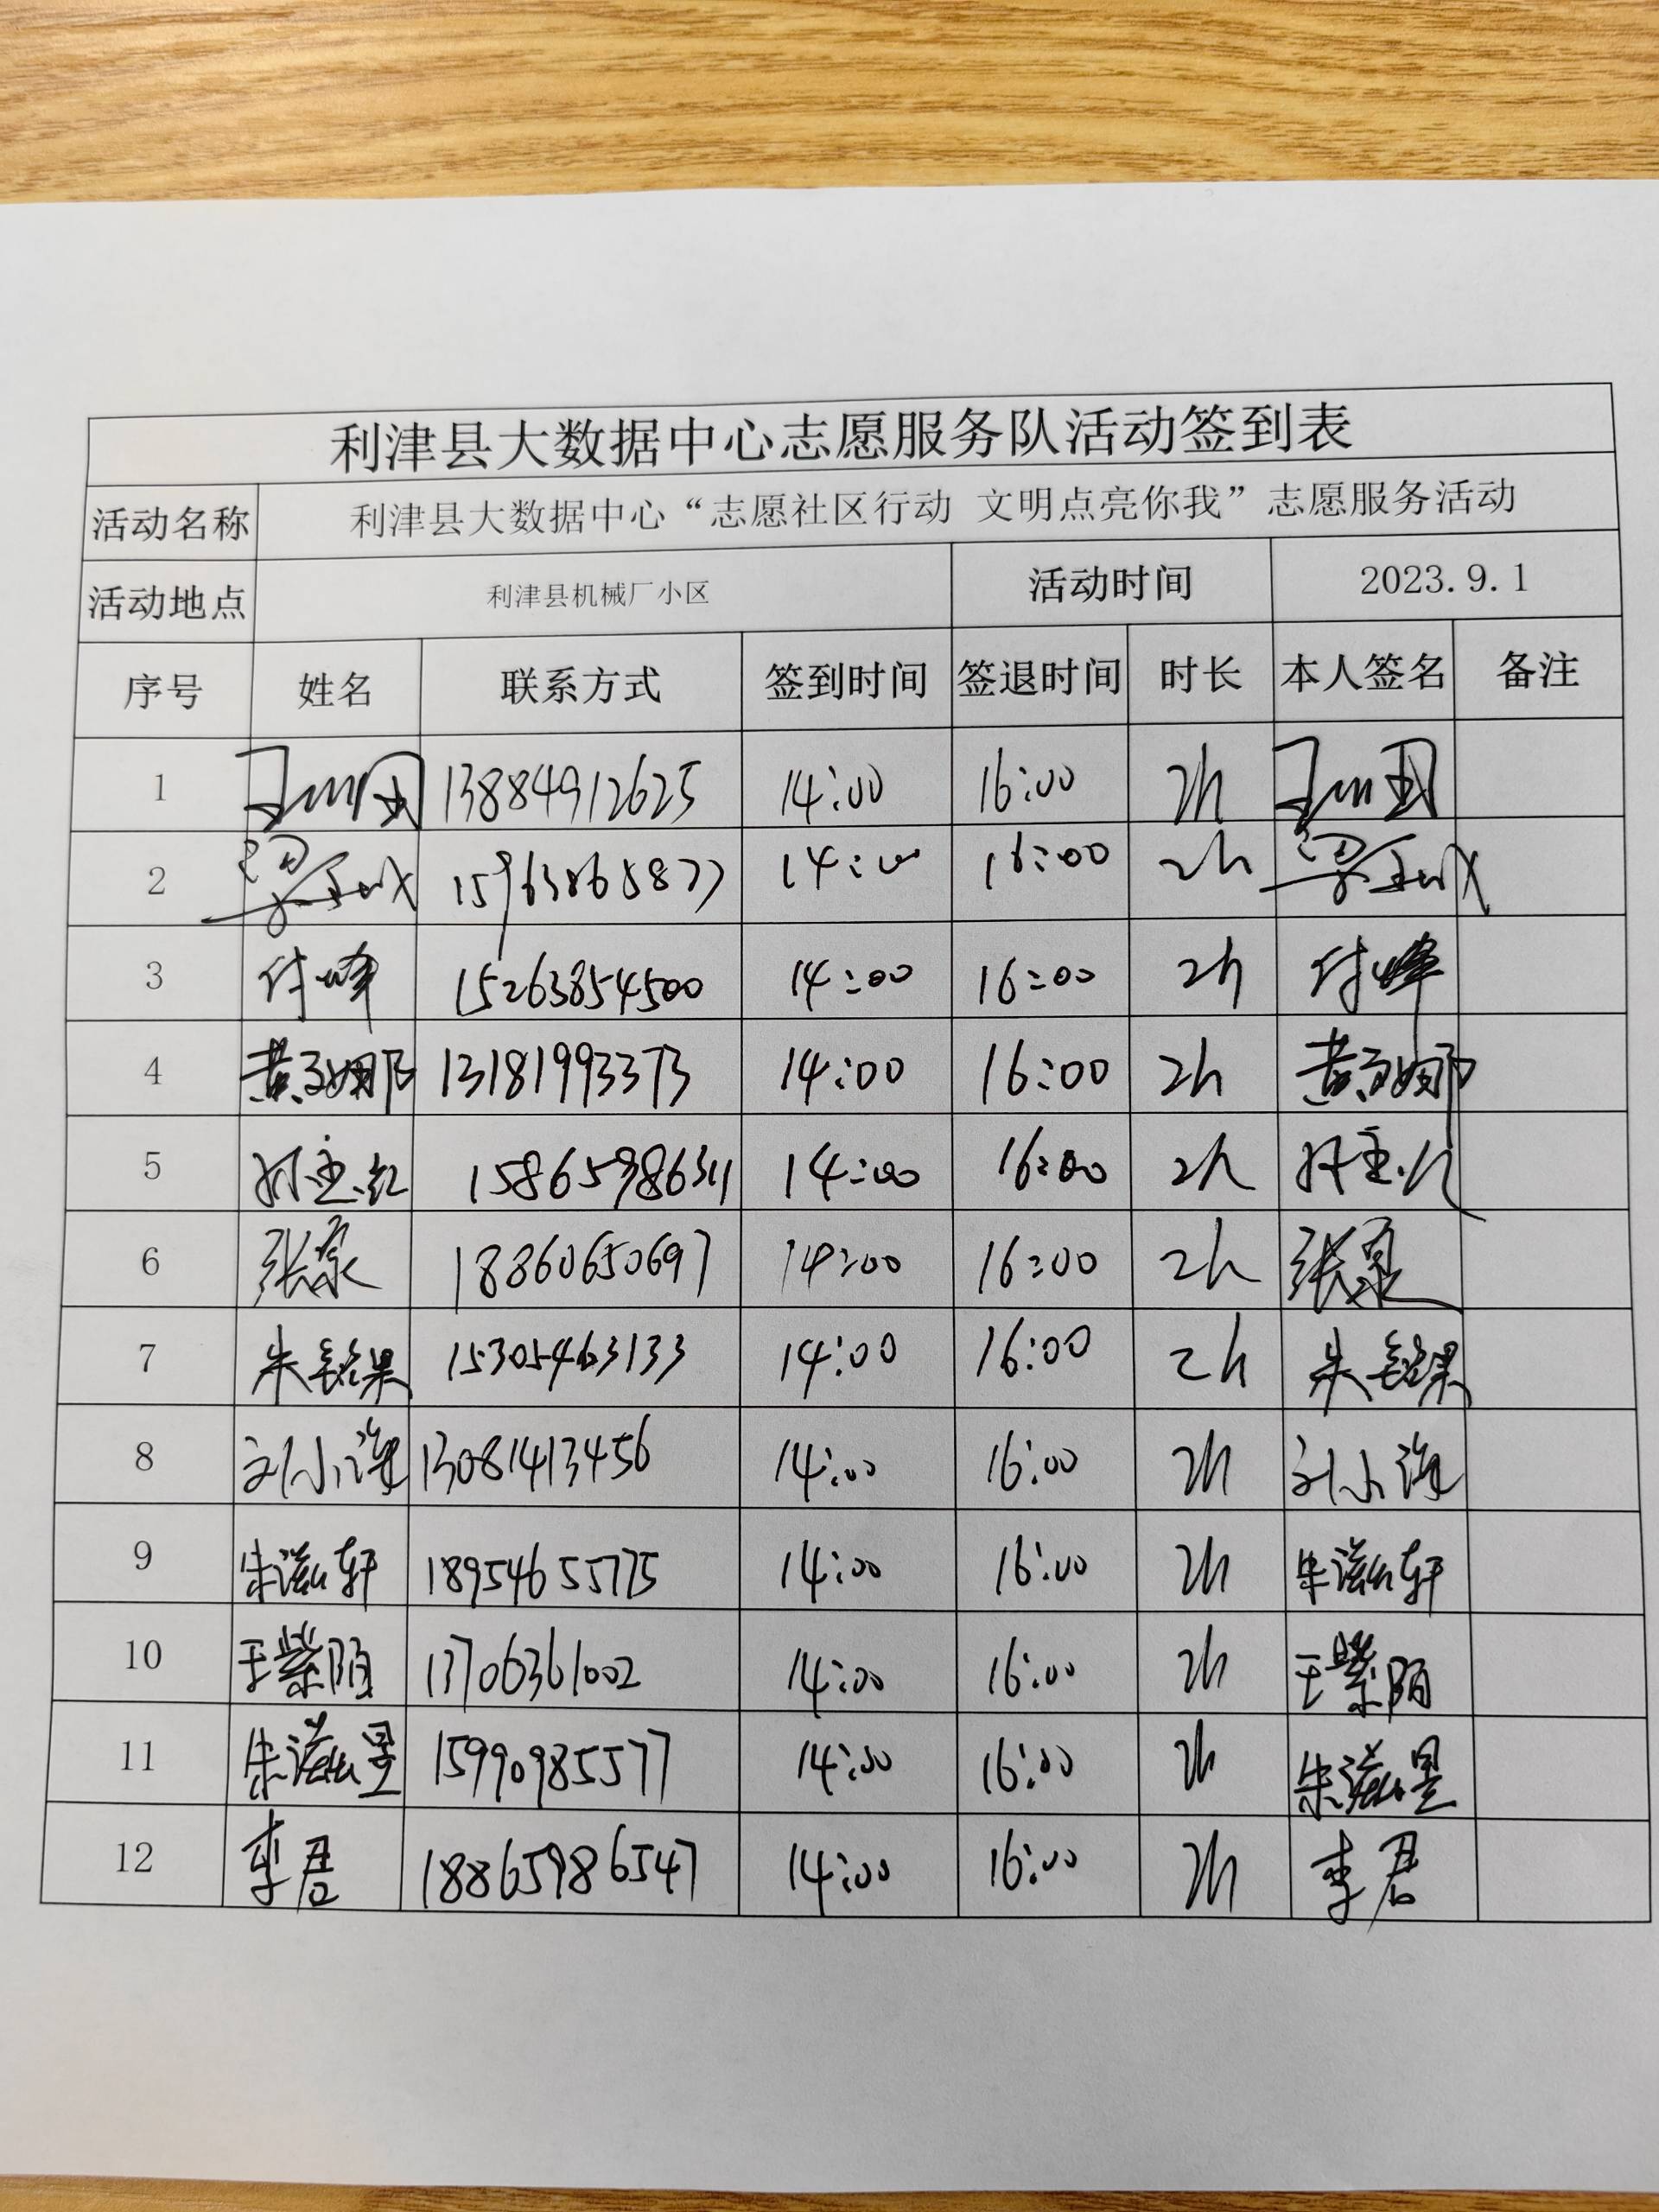 利津县大数据中心志愿服务队活动签到表
活动名称 利津县大数据中心“志愿社区行动 文明点亮你我”志愿服务活动
活动地点 利津县机械厂小区 活动时间 2023.9.1
序号 姓名 联系方式 签到时间 签退时间 时长 本人签名 备注
1 13884912625 14:00 16:00 2h
2 15963865877 14:00 16:00 2h
3 付峰 15263854500 14:00 16:00 2h 付峰
4 13181993373 14:00 16:00 2h
5 15865986311 14:00 16:00 2h
6 张泉 18860650697 14:00 16:00 2h 张泉
7 朱铭果 15305463133 14:00 16:00 2h 朱铭果
8 刘小滢 13081413456 14:00 16:00 2h 刘小滢
9 朱滋轩 18954655775 14:00 16:00 2h 朱滋轩
10 王紫陌 13706361002 14:00 16:00 2h 王紫陌
11 朱滋昱 15990985577 14:00 16:00 2h 朱滋昱
12 李君 18865986547 14:00 16:00 2h 李君